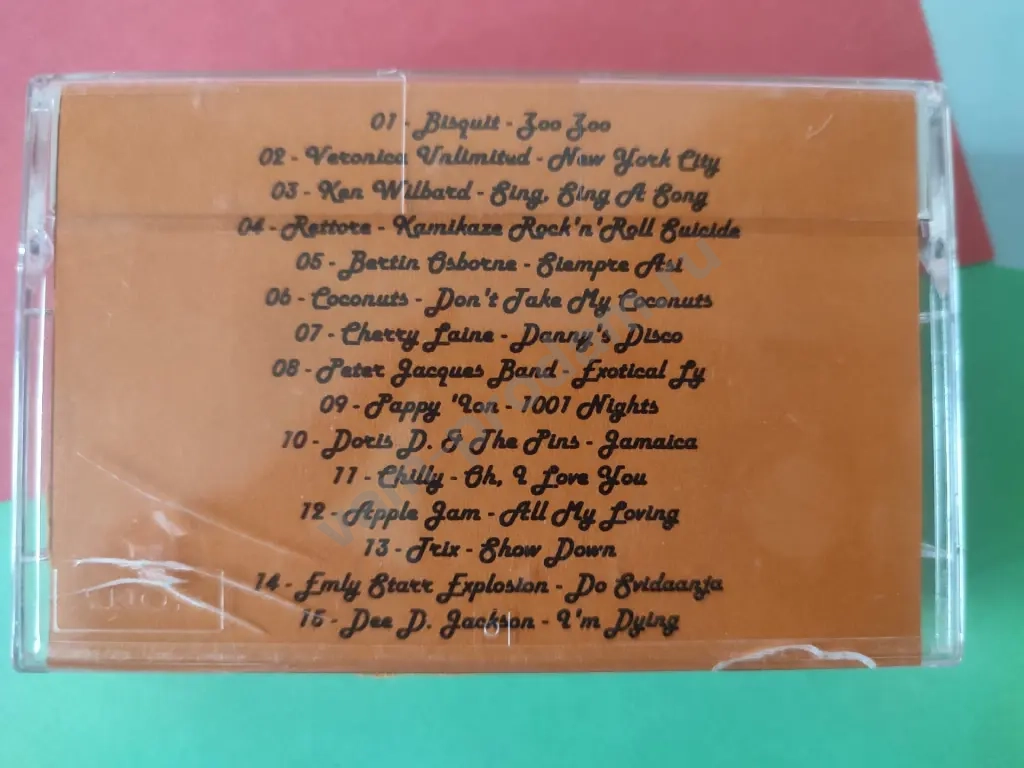 01 - Bisquit - Zoo Zoo
02 - Veronica Unlimitud - New York City
03 - Ken Wilbard - Sing, Sing A Song
04 - Rettore - Kamikaze Rock'n'Roll Suicide
05 - Bertin Osborne - Siempre Asi
06 - Coconuts - Don't Take My Coconuts
07 - Cherry Laine - Danny's Disco
08 - Peter Jacques Band - Exotical Ly
09 - Pappy 'Lon - 1001 Nights
10 - Doris D. & The Pins - Jamaica
11 - Chilly - Oh, I Love You
12 - Apple Jam - All My Loving
13 - Trix - Show Down
14 - Emly Starr Explosion - Do Svidaanja
15 - Dee D. Jackson - I'm Dying